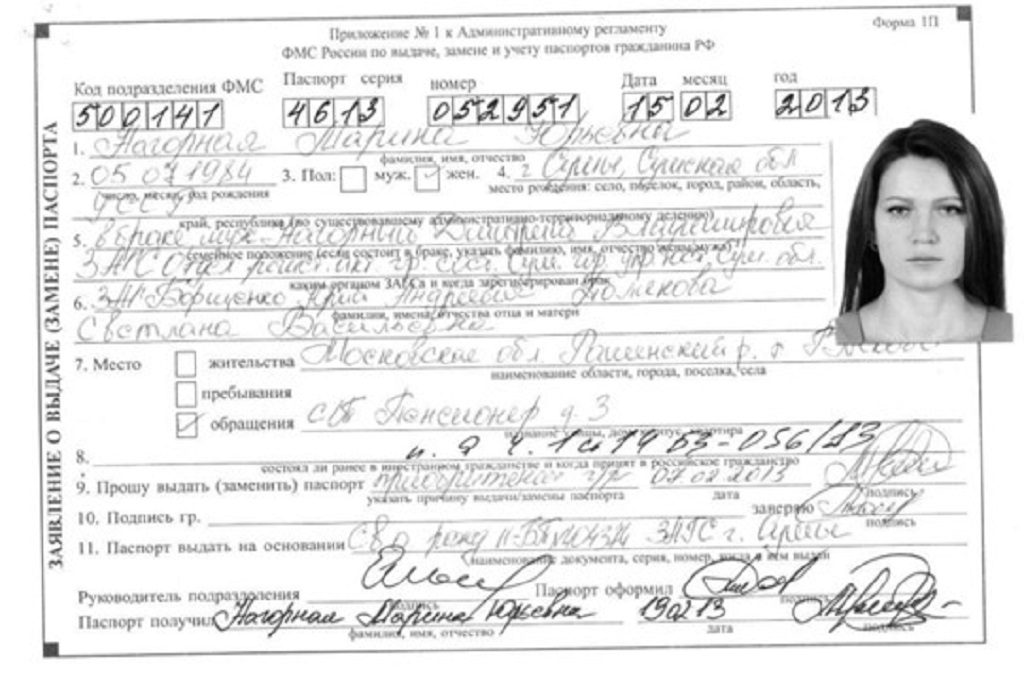 Форма 1П
Приложение № 1 к Административному регламенту
ФМС России по выдаче, замене и учету паспортов гражданина РФ
Код подразделения ФМС Паспорт серия номер Дата месяц год
500141 4613 052951 15 02 2013
ЗАЯВЛЕНИЕ О ВЫДАЧЕ (ЗАМЕНЕ) ПАСПОРТА
1. Нагорная Марина Юрьевна
фамилия, имя, отчество
2. 05 07 1984 3. Пол: муж. жен. 4. г Сумы, Сумская обл
число, месяц, год рождения место рождения: село, поселок, город, район, область,
УССР
край, республика (по существовавшему административно-территориальному делению)
5. в браке муж Нагорный Дмитрий Владимирович
семейное положение (если состоит в браке, указать фамилию, имя, отчество жены, мужа)
ЗАГС обл.
каким органом ЗАГСа и когда зарегистрирован брак
6. Юрий Андреевич
фамилии, имена, отчества отца и матери
Светлана Васильевна
7. Место жительства Московская обл Раменский р.
наименование области, города, поселка, села
пребывания
обращения СНТ Пенсионер д. 3
название улицы, дом, корпус, квартира
8. п. а ч. 1 ст 14 ФЗ-
состоял ли ранее в иностранном гражданстве и когда принят в российское гражданство
9. Прошу выдать (заменить) паспорт 07.02.2013
указать причину выдачи/замены паспорта дата подпись
10. Подпись гр. заверяю
подпись
11. Паспорт выдать на основании ЗАГС г. Сумы
наименование документа, серия, номер, когда и кем выдан
Руководитель подразделения Паспорт оформил
подпись подпись
Паспорт получил Нагорная Марина Юрьевна 190213
фамилия, имя, отчество дата подпись